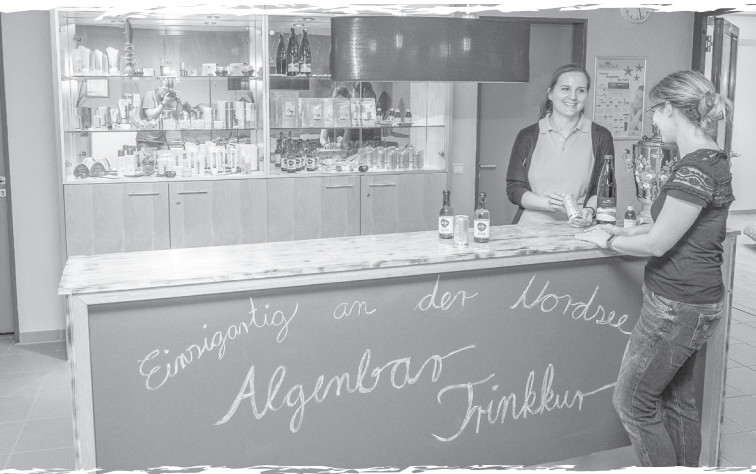 Einzigartig an der Nordsee
Algenbar
Trinkkur